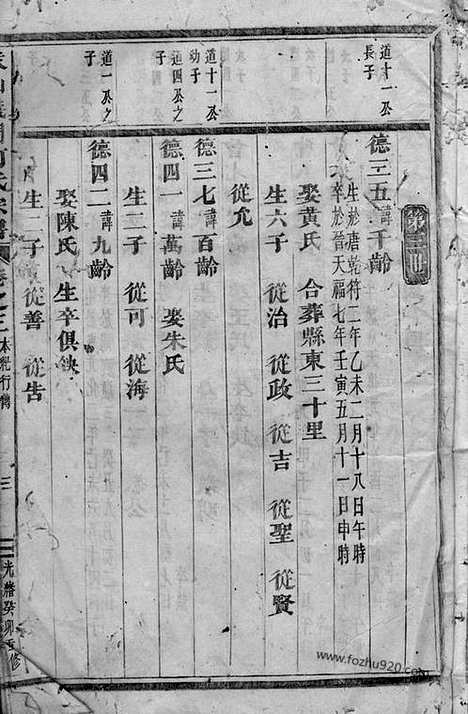 道十一公
長子
德三五諱千齡
生於唐乾符二年乙未二月十八日午時
卒於晉天福七年壬寅五月十一日申時
娶黄氏 合葬縣東三十里
生六子 從治 從政 從吉 從聖 從賢
從允
道十一公
幼子
德三七諱百齡
道四公之
子
德四一諱萬齡 娶朱氏
生二子 從可 從海
道一公之
子
德四二諱九齡
娶陳氏 生卒俱缺
生二子 從善 從告
本紀行傳
三
光緒癸卯重修
www.fozhu920.com